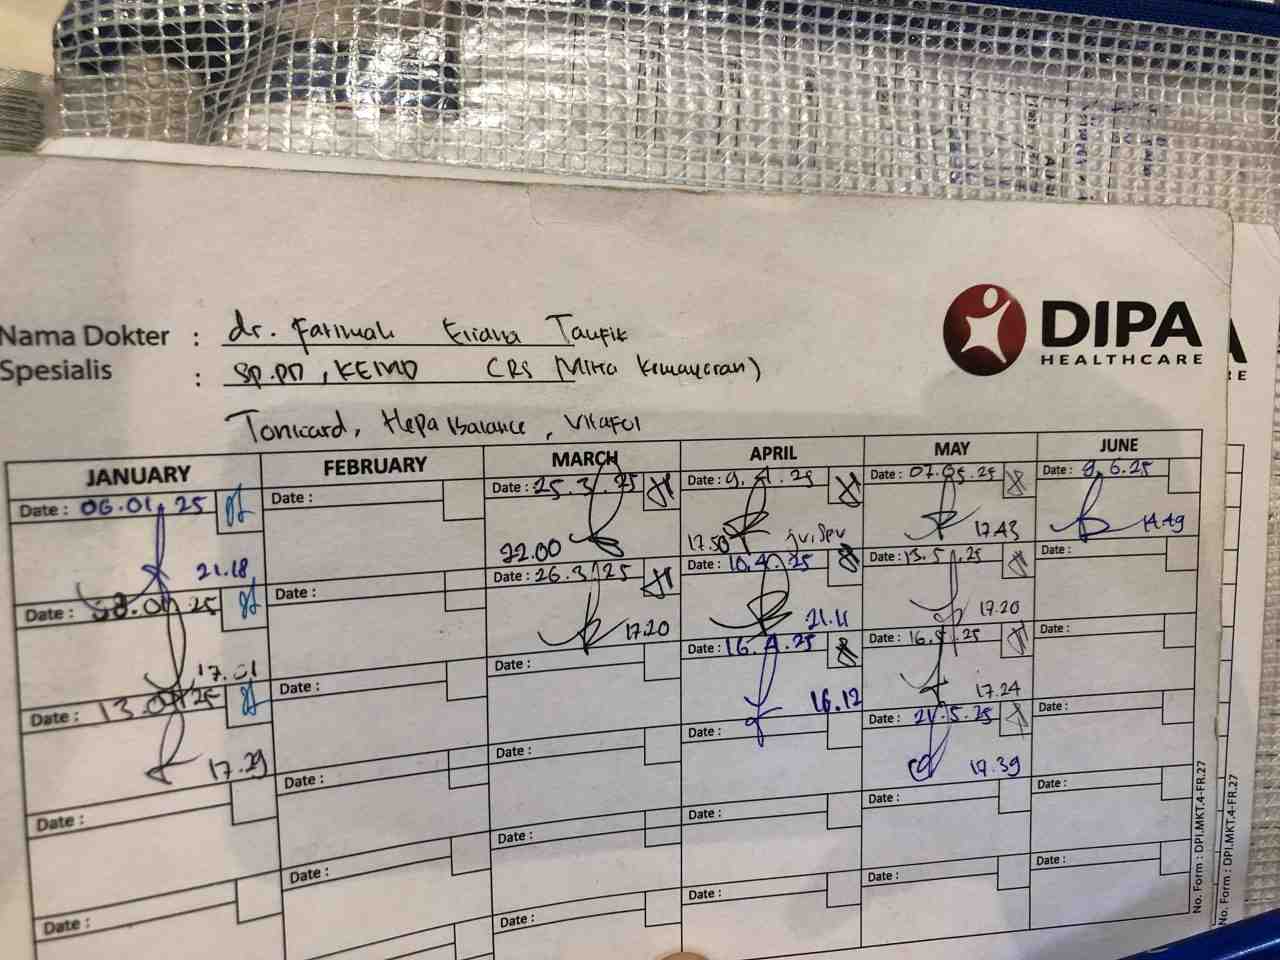 DIPA
HEALTHCARE
Nama Dokter : dr. Fatimah Eliana Taufik
Spesialis : Sp.PD, KEMD (RS Mitra Kemayoran)
Tonicard, Hepa Balance, Vitaful
JANUARY
Date : 06.01.25
21.18
Date : 08.01.25
17.01
Date : 13.01.25
17.29
Date :
Date :
FEBRUARY
Date :
Date :
Date :
Date :
Date :
MARCH
Date : 25.3.25
22.00
Date : 26.3.25
17.20
Date :
Date :
Date :
Date :
APRIL
Date : 9.4.25
17.50
Date : 10.4.25
21.11
Date : 16.4.25
16.12
Date :
Date :
Date :
MAY
Date : 07.05.25
17.43
Date : 13.5.25
17.20
Date : 16.5.25
17.24
Date : 21.5.25
17.39
Date :
Date :
JUNE
Date : 9.6.25
14.49
Date :
Date :
Date :
Date :
Date :
No. Form : DPI.MKT.4-FR.27
No. Form : DPI.MKT.4-FR.27